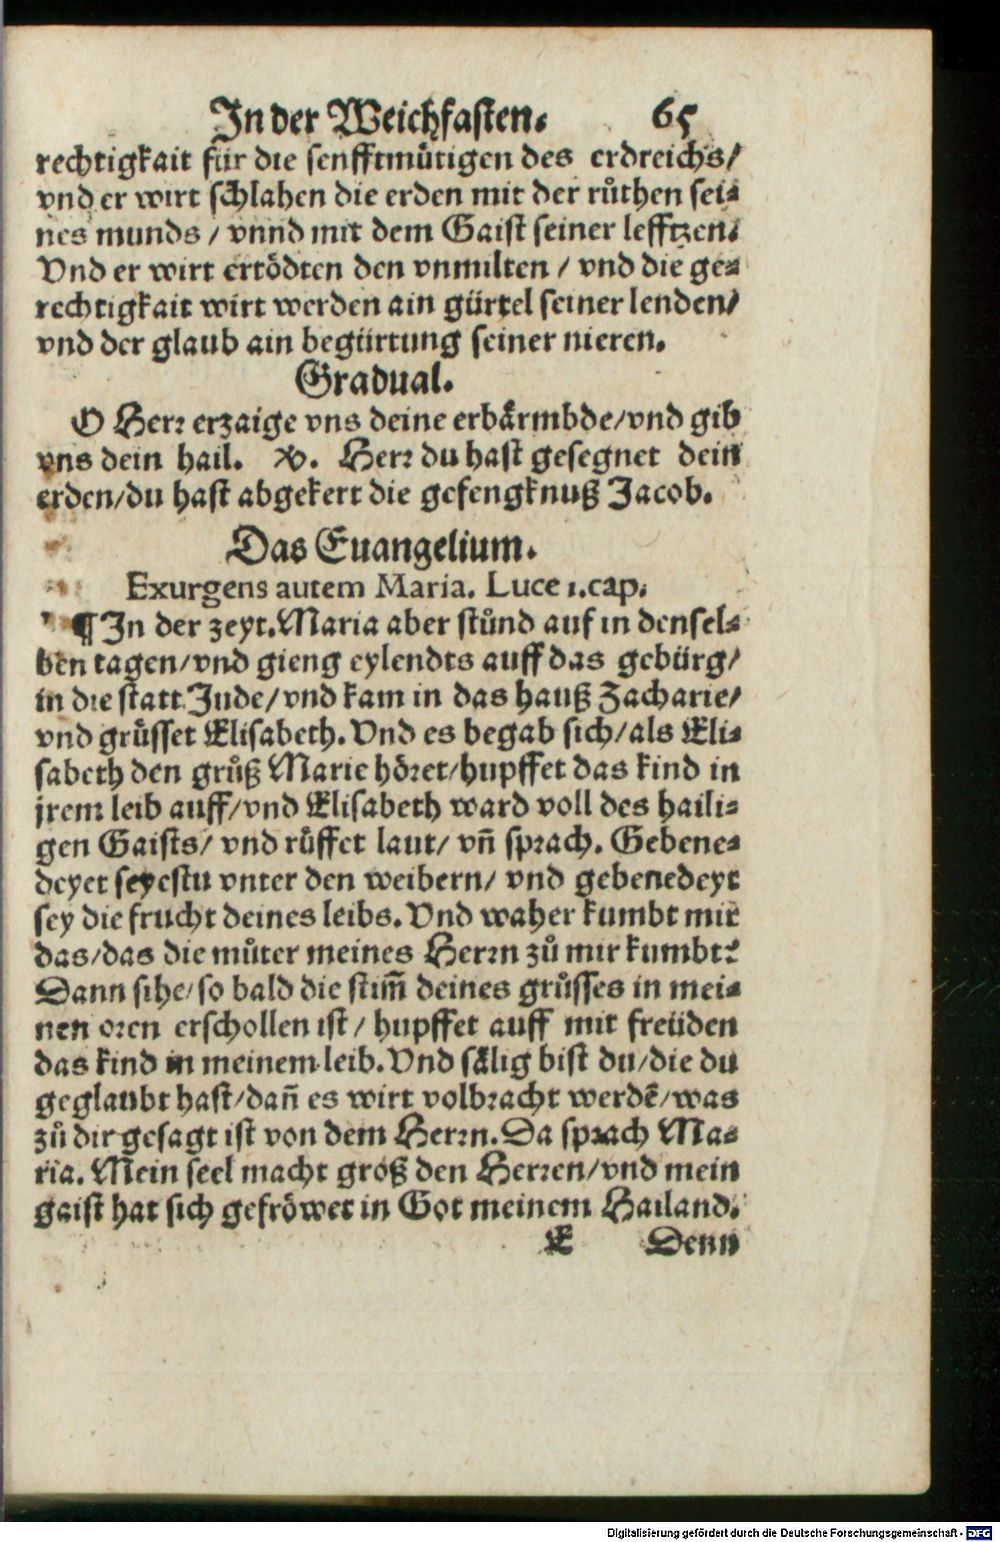 In der Weichfasten. 65
rechtigkait für die senfftmůtigen des erdreichs/
vnd er wirt schlahen die erden mit der růthen sei-
nes munds / vnnd mit dem Gaist seiner lefftzen.
Vnd er wirt ertödten den vnmilten / vnd die ge-
rechtigkait wirt werden ain gürtel seiner lenden/
vnd der glaub ain begürtung seiner nieren.
Gradual.
O Herr erzaige vns deine erbärmbde/vnd gib
vns dein hail. V. Herr du hast gesegnet dein
erden/du hast abgekert die gefengknuß Jacob.
Das Euangelium.
Exurgens autem Maria. Luce 1.cap.
¶ In der zeyt. Maria aber stůnd auf in densel-
ben tagen/vnd gieng eylendts auff das gebürg/
in die statt Jude/vnd kam in das hauß Zacharie/
vnd grůsset Elisabeth. Vnd es begab sich/als Eli-
sabeth den grůß Marie höret/hupffet das kind in
jrem leib auff/vnd Elisabeth ward voll des haili-
gen Gaists/ vnd růffet laut/ vñ sprach. Gebene-
deyet seyestu vnter den weibern/ vnd gebenedeyt
sey die frucht deines leibs. Vnd waher kumbt mir
das/das die můter meines Herrn zů mir kumbt?
Dann sihe/so bald die stim̃ deines grůsses in mei-
nen oren erschollen ist / hupffet auff mit freüden
das kind in meinem leib. Vnd sälig bist du/die du
geglaubt hast/dañ es wirt volbracht werdẽ/was
zů dir gesagt ist von dem Herrn. Da sprach Ma-
ria. Mein seel macht groß den Herren/vnd mein
gaist hat sich gefröwet in Got meinem Hailand.
E Denn
Digitalisierung gefördert durch die Deutsche Forschungsgemeinschaft - DFG